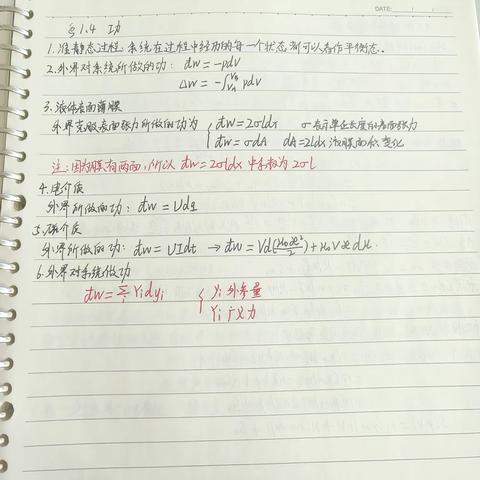 §1.4 功
1.准静态过程 系统在过程中经历的每一个状态都可以看作平衡态.
2.外界对系统所做的功: đw = -pdV
ΔW = -∫_{VA}^{VB} pdV
3.液体表面薄膜
外界克服表面张力所做的功为 { đw = 2σldx σ表示单位长度的表面张力
đw = σdA dA=2ldx 液膜面积变化
注:因为膜有两面,所以 đw=2σldx 中系数为2σl
4.电介质
外界所做的功: đw = Udq
5.磁介质
外界所做的功: đw = UIdt → đw = Vd(μ₀ℋ²/2) + μ₀Vℋdℳ.
6.外界对系统做功
đw = ∑_i Yidyi { yi 外参量
Yi 广义力
DATE: / /